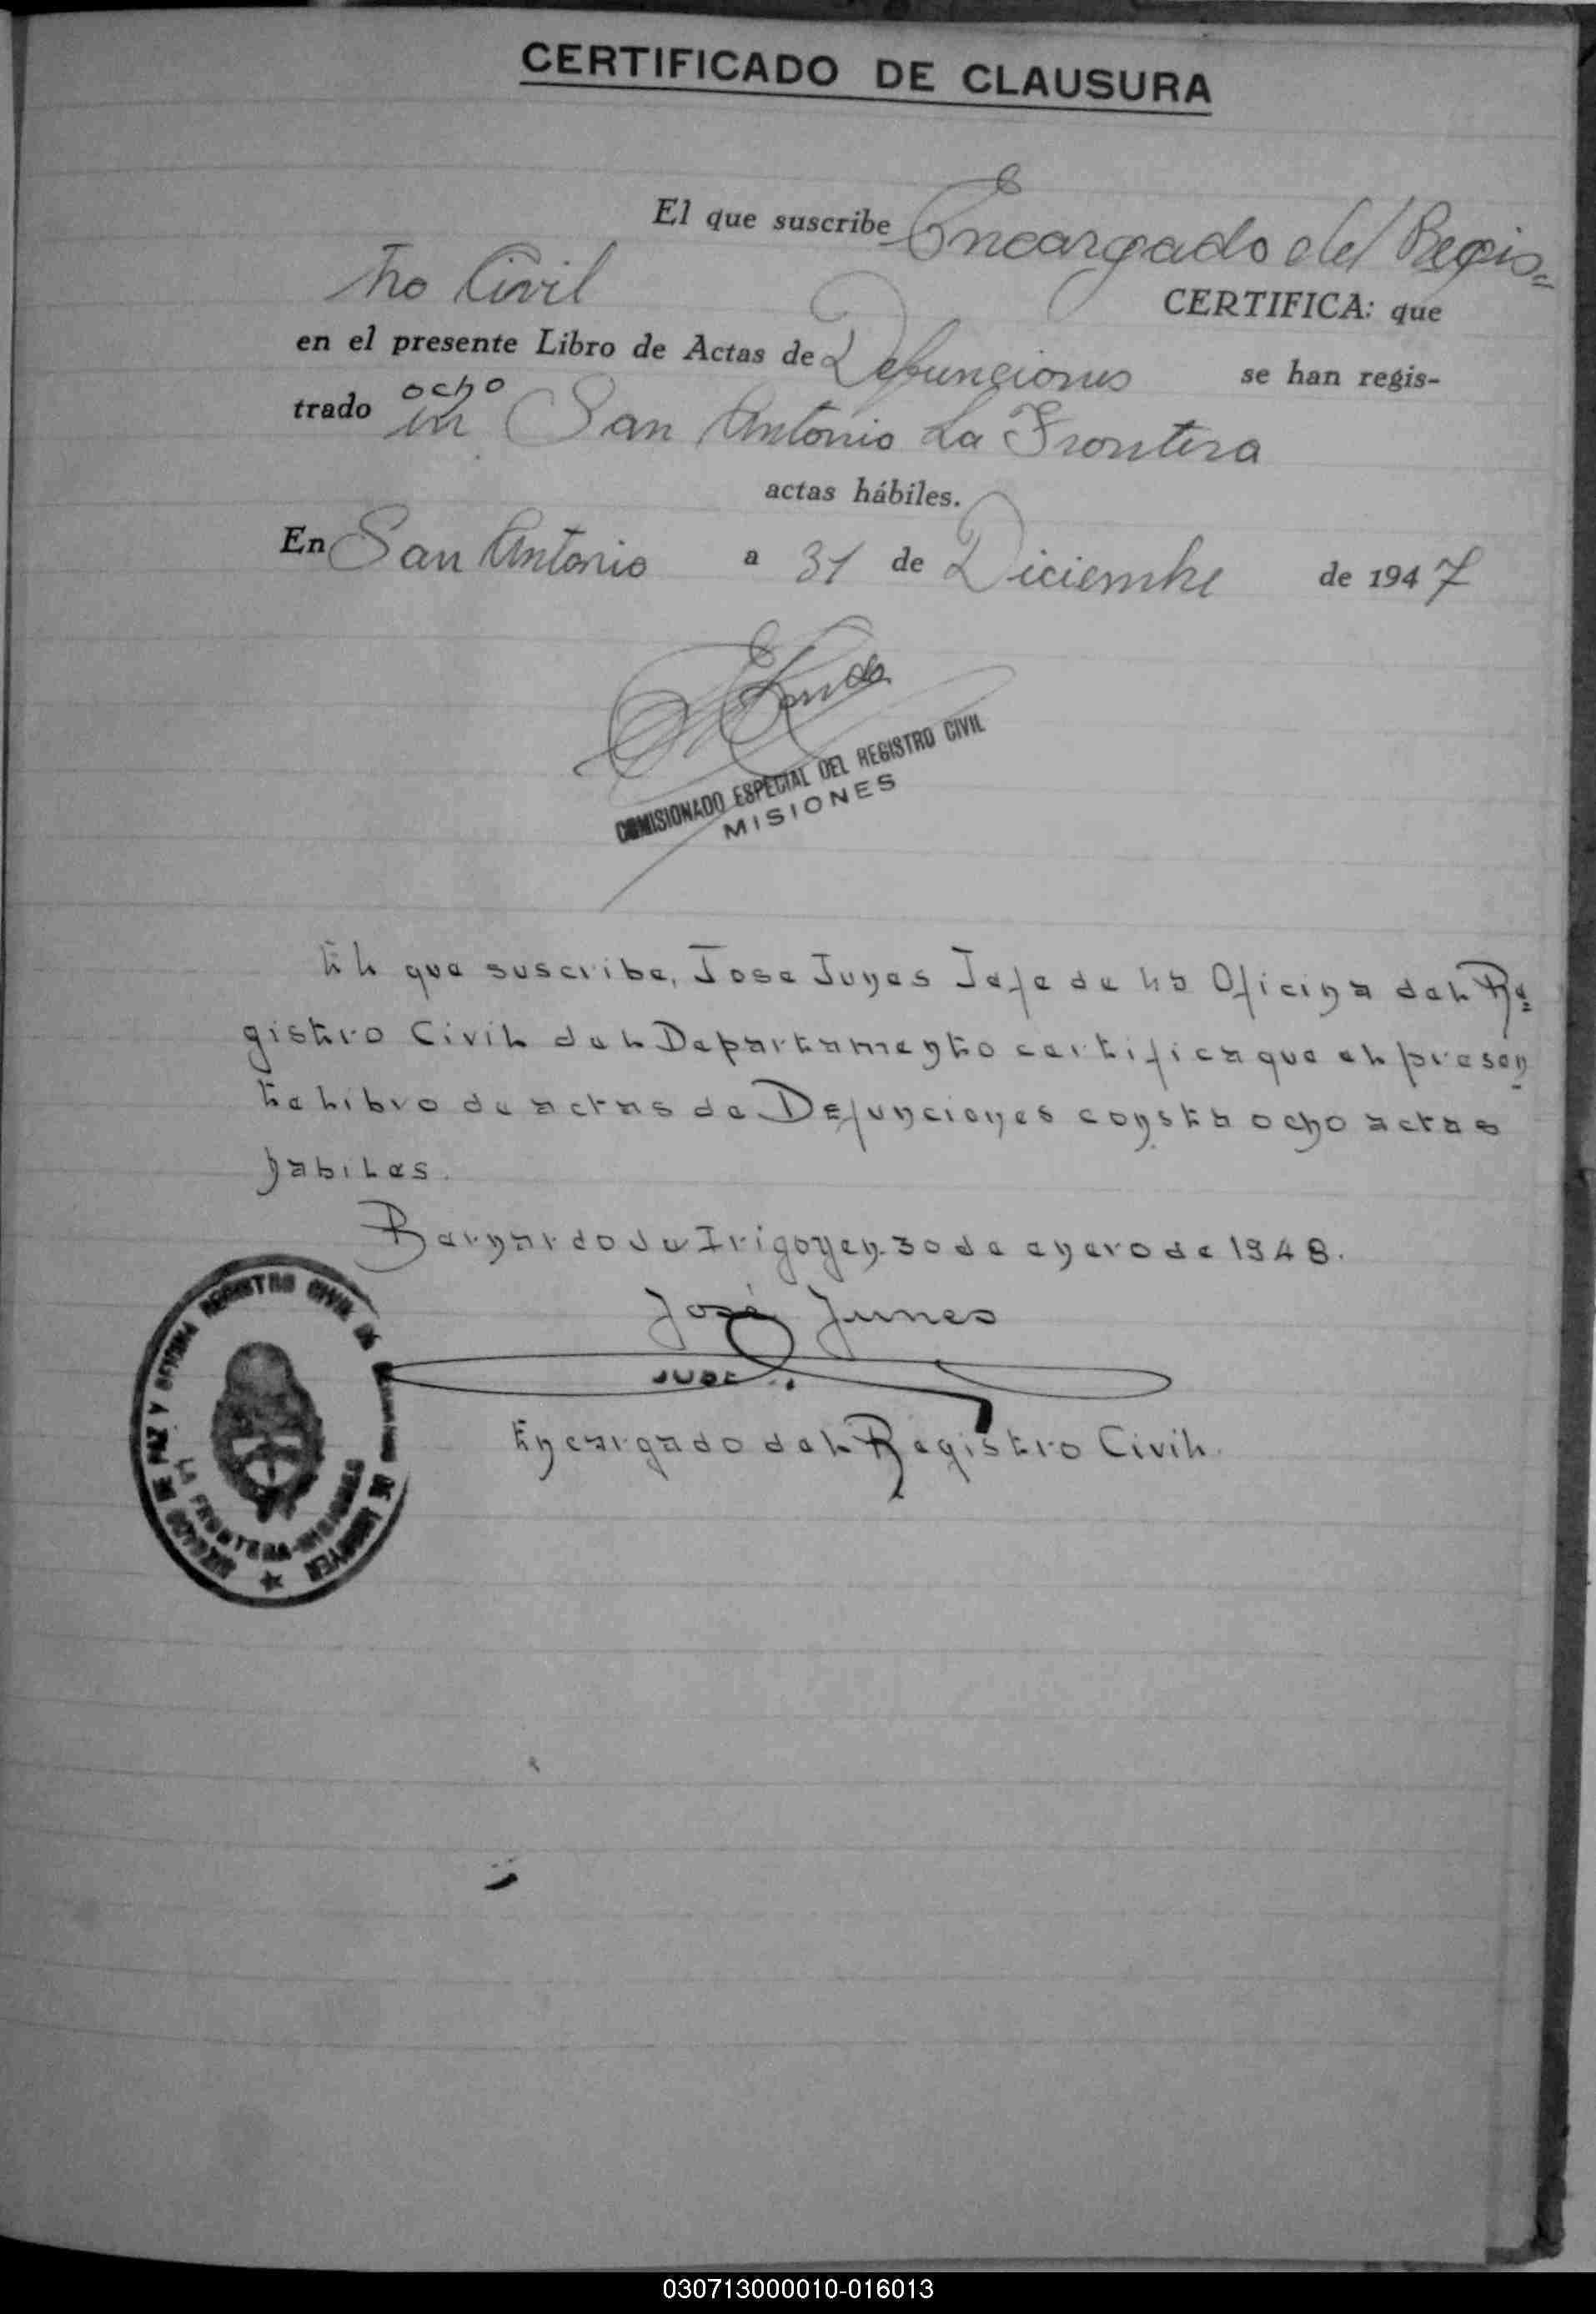 CERTIFICADO DE CLAUSURA
El que suscribe Encargado del Regis=
tro Civil CERTIFICA: que
en el presente Libro de Actas de Defunciones se han regis-
trado ocho en San Antonio La Frontera
actas hábiles.
En San Antonio a 31 de Diciembre de 1947
COMISIONADO ESPECIAL DEL REGISTRO CIVIL
MISIONES
El que suscribe, Jose Junes Jefe de la Oficina del Re=
gistro Civil del Departamento certifica que el presen
te libro de actas de Defunciones consta ocho actas
habiles.
Bernardo de Irigoyen 30 de enero de 1948.
José Junes
Encargado del Registro Civil.
JUZGADO DE PAZ Y OFICINA REGISTRO CIVIL DE BERNARDO DE IRIGOYEN
LA FRONTERA-MISIONES
030713000010-016013